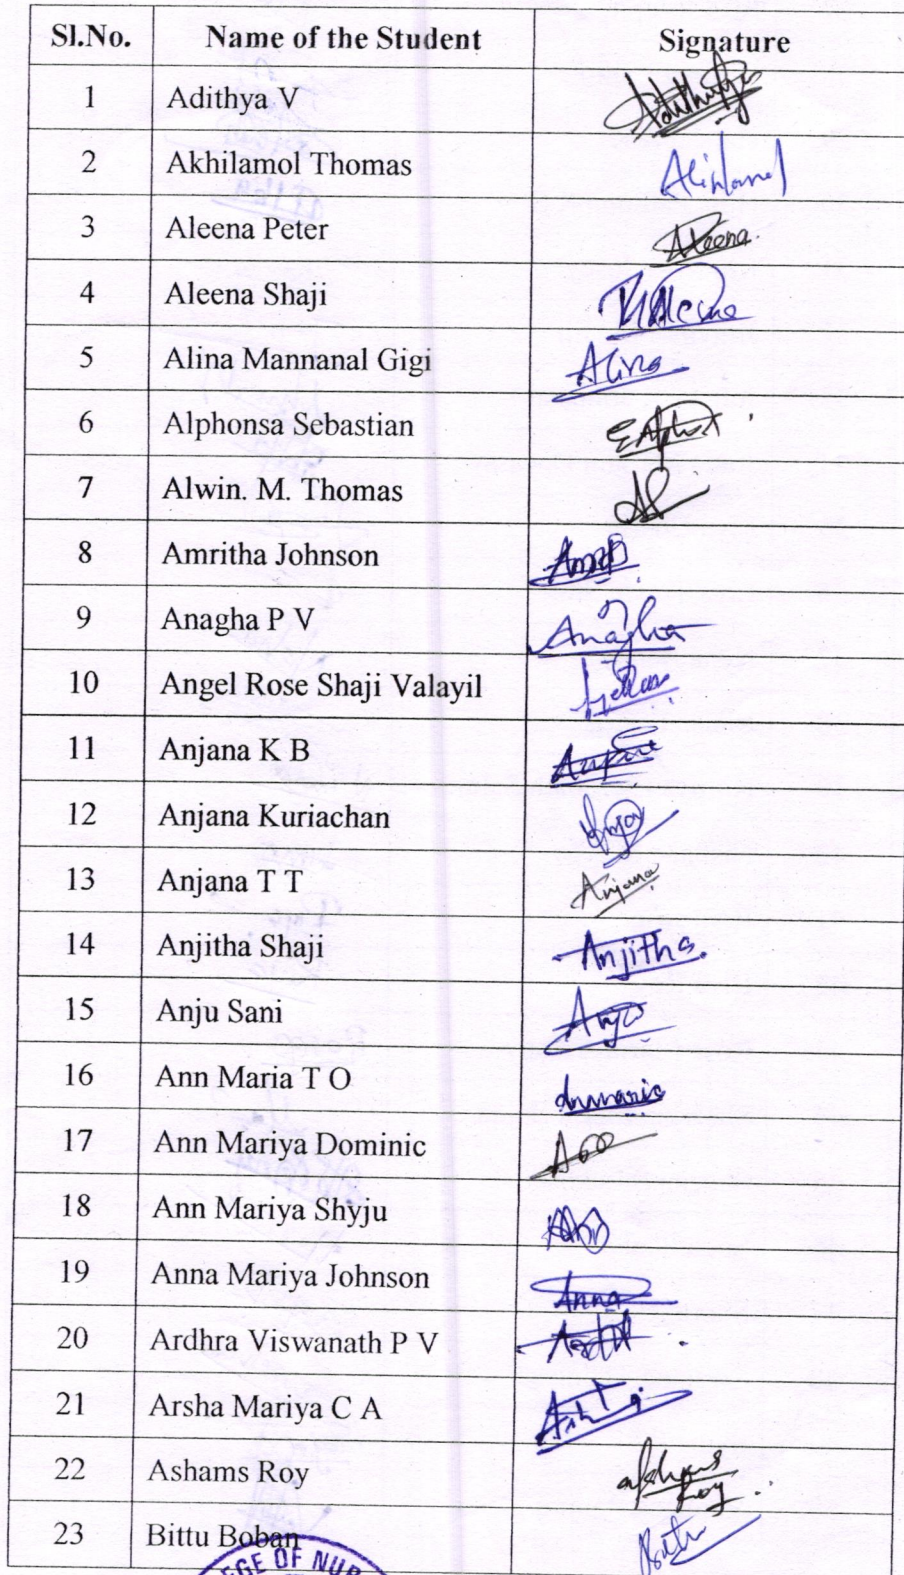 Sl.No. Name of the Student Signature
1 Adithya V
2 Akhilamol Thomas
3 Aleena Peter Aleena.
4 Aleena Shaji
5 Alina Mannanal Gigi Alina
6 Alphonsa Sebastian
7 Alwin. M. Thomas
8 Amritha Johnson
9 Anagha P V Anagha
10 Angel Rose Shaji Valayil
11 Anjana K B
12 Anjana Kuriachan
13 Anjana T T Anjana
14 Anjitha Shaji Anjitha.
15 Anju Sani Anju
16 Ann Maria T O Annmaria
17 Ann Mariya Dominic
18 Ann Mariya Shyju
19 Anna Mariya Johnson Anna
20 Ardhra Viswanath P V
21 Arsha Mariya C A
22 Ashams Roy Roy
23 Bittu Boban
EGE OF NUR